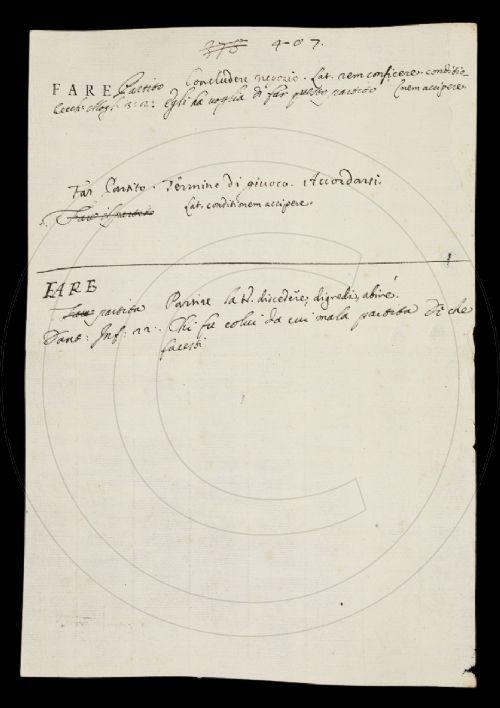 378 407.
FARE Partito Concludere negozio. Lat. rem conficere. conditio
Cecch: Mogl: 3: 2: Egli ha voglia di far questo partito (nem accipere.
Far Partito. Termine di giuoco. Accordarsi.
Fare il partito Lat. conditionem accipere.
FARE
Fare partita Partire Lat. discedere, digredi, abire.
Dant: Inf: 22: Chi fu colui da cui mala partita Di che
facesti